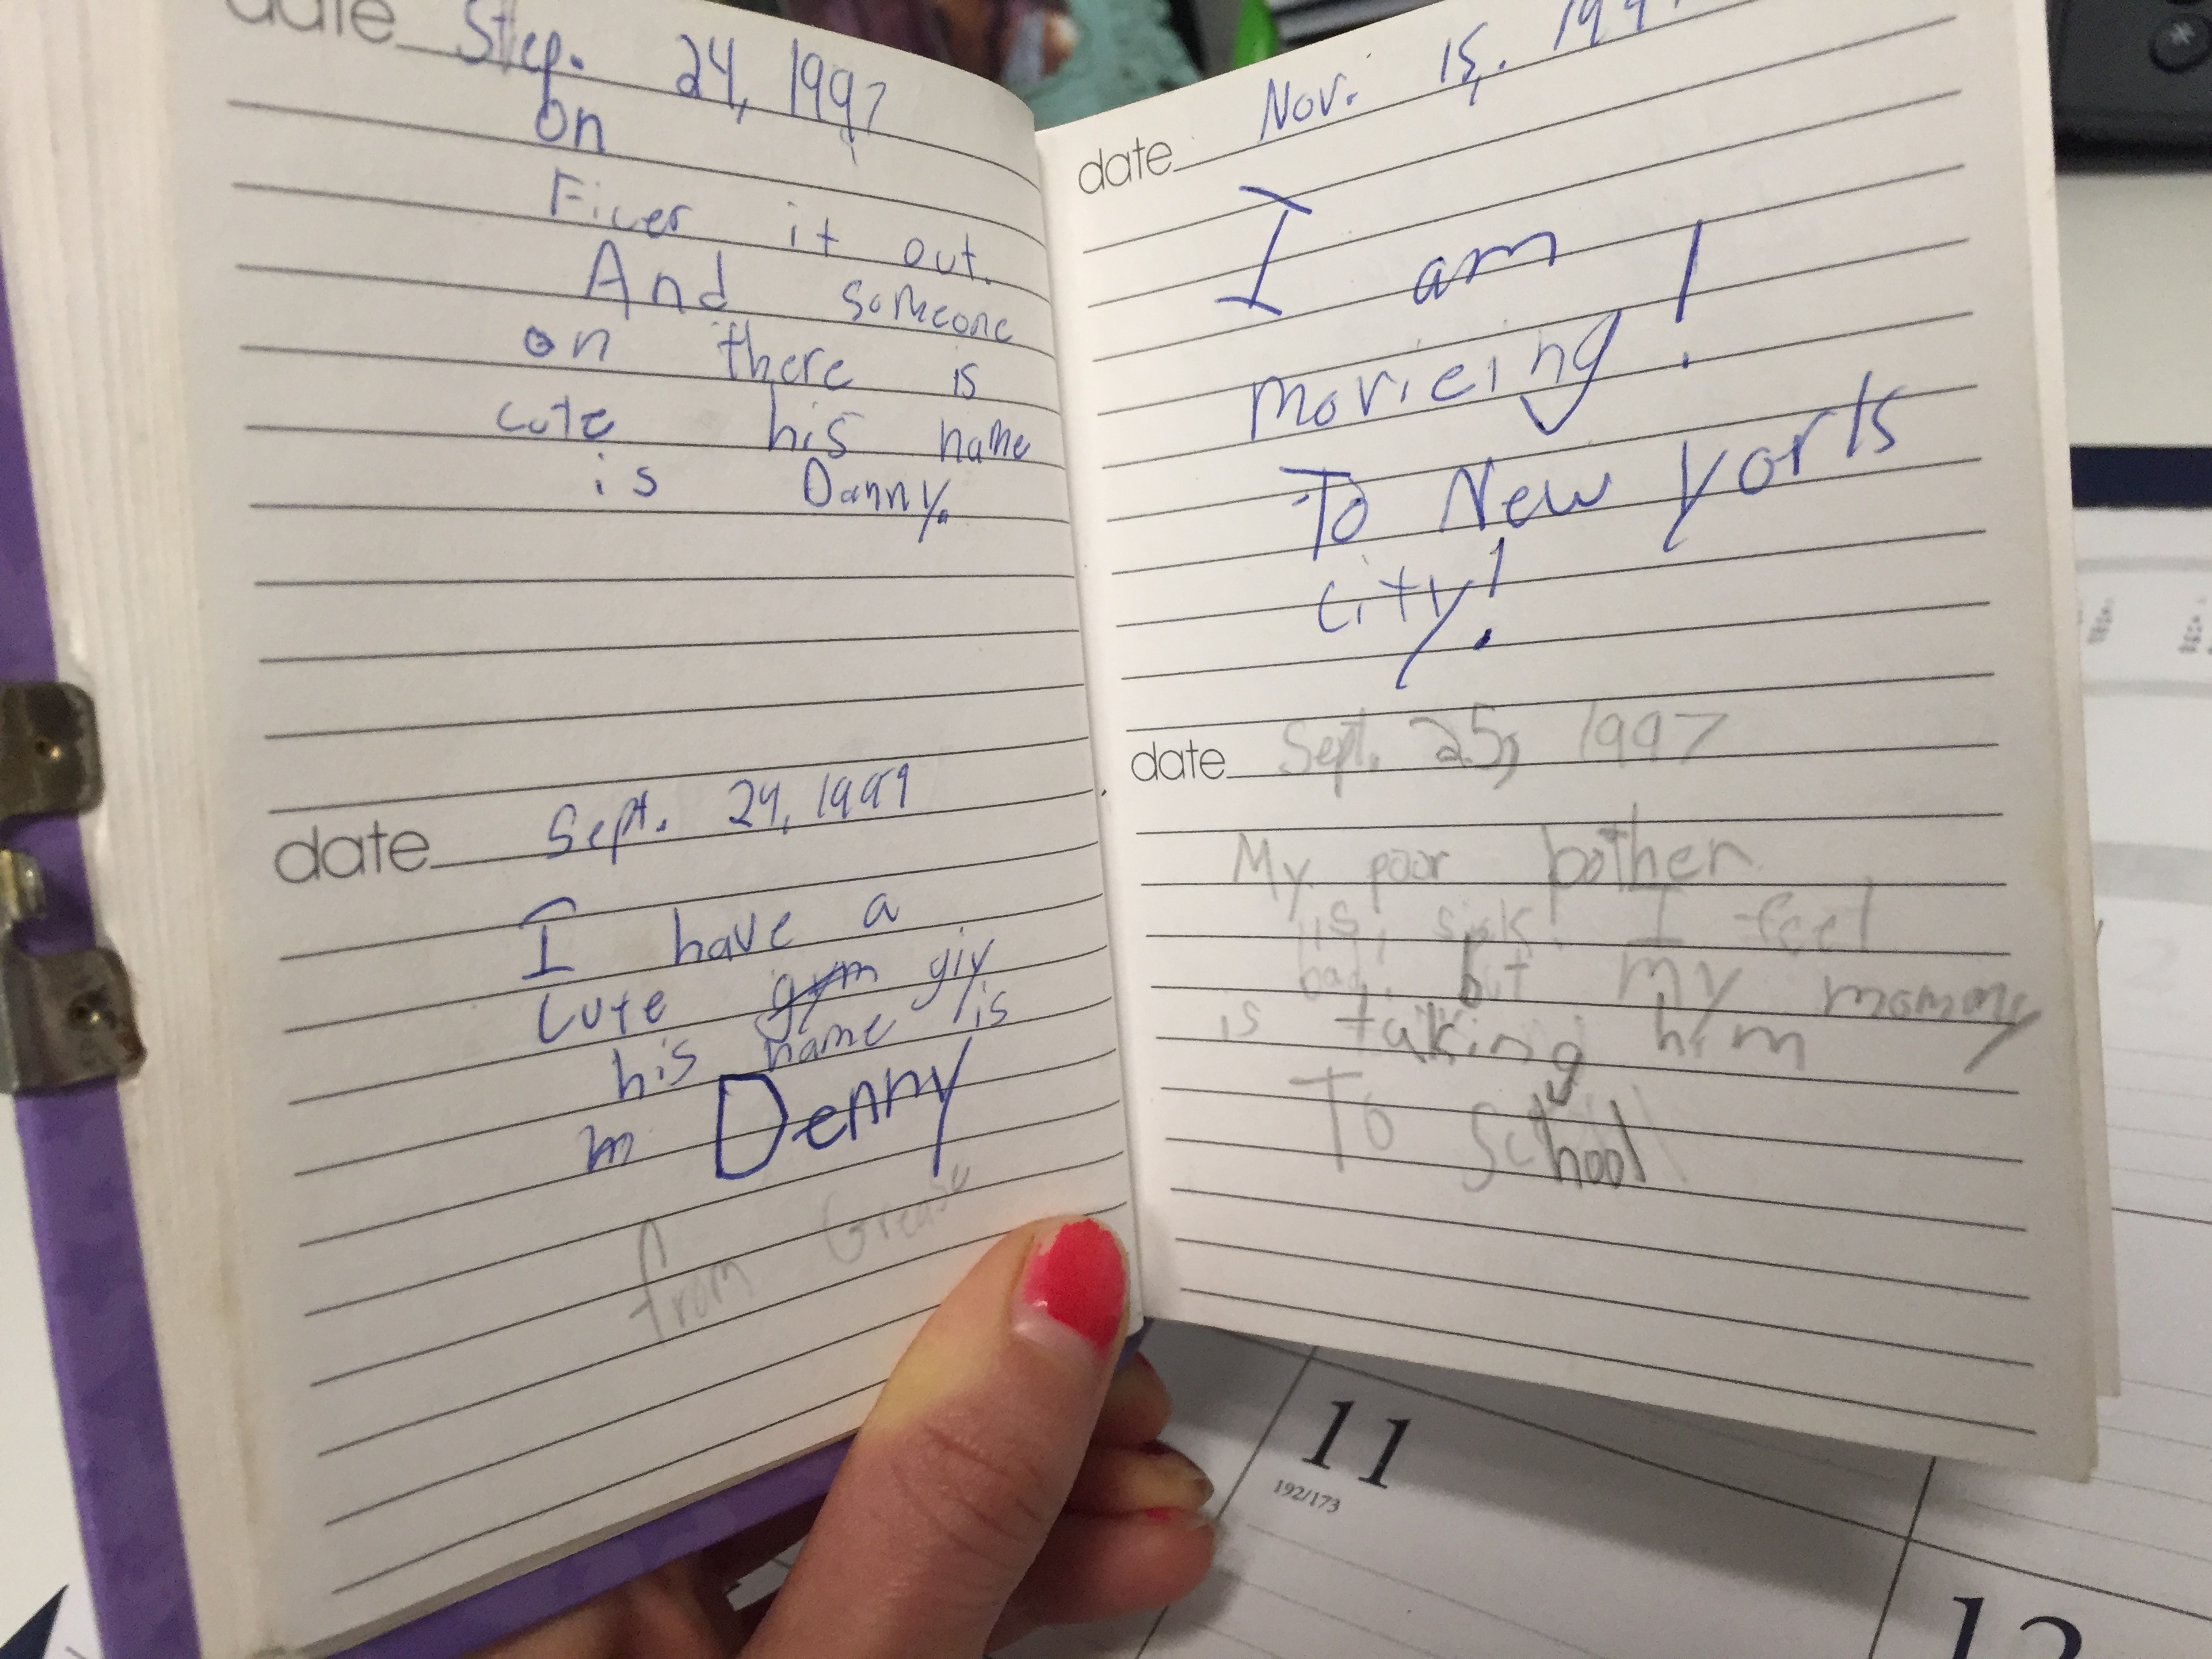 date Step. 24, 1997
on
Ficer it out.
And someone
on there is
cute his name
is Danny.
date Sept. 24, 1997
I have a
cute gym giy
his name is
m Denny
from Grease
date Nov. 15,. 199
I am
movieing!
To New York
city!
date Sept. 25, 1997
My poor bother
is sick! I feel
bad, but my mommy
is taking him
To school
11
192/173
12